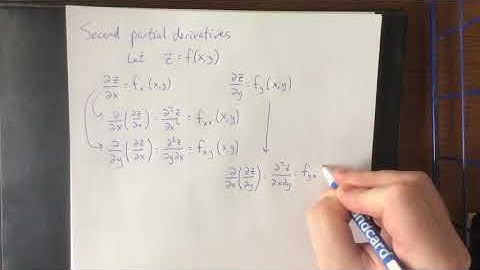 Second partial derivatives
Let z = f(x,y)
∂z/∂x = fₓ(x,y)    ∂z/∂y = f_y(x,y)
∂/∂x(∂z/∂x) = ∂²z/∂x² = fₓₓ(x,y)
∂/∂y(∂z/∂x) = ∂²z/∂y∂x = f_xy(x,y)
∂/∂x(∂z/∂y) = ∂²z/∂x∂y = f_yx